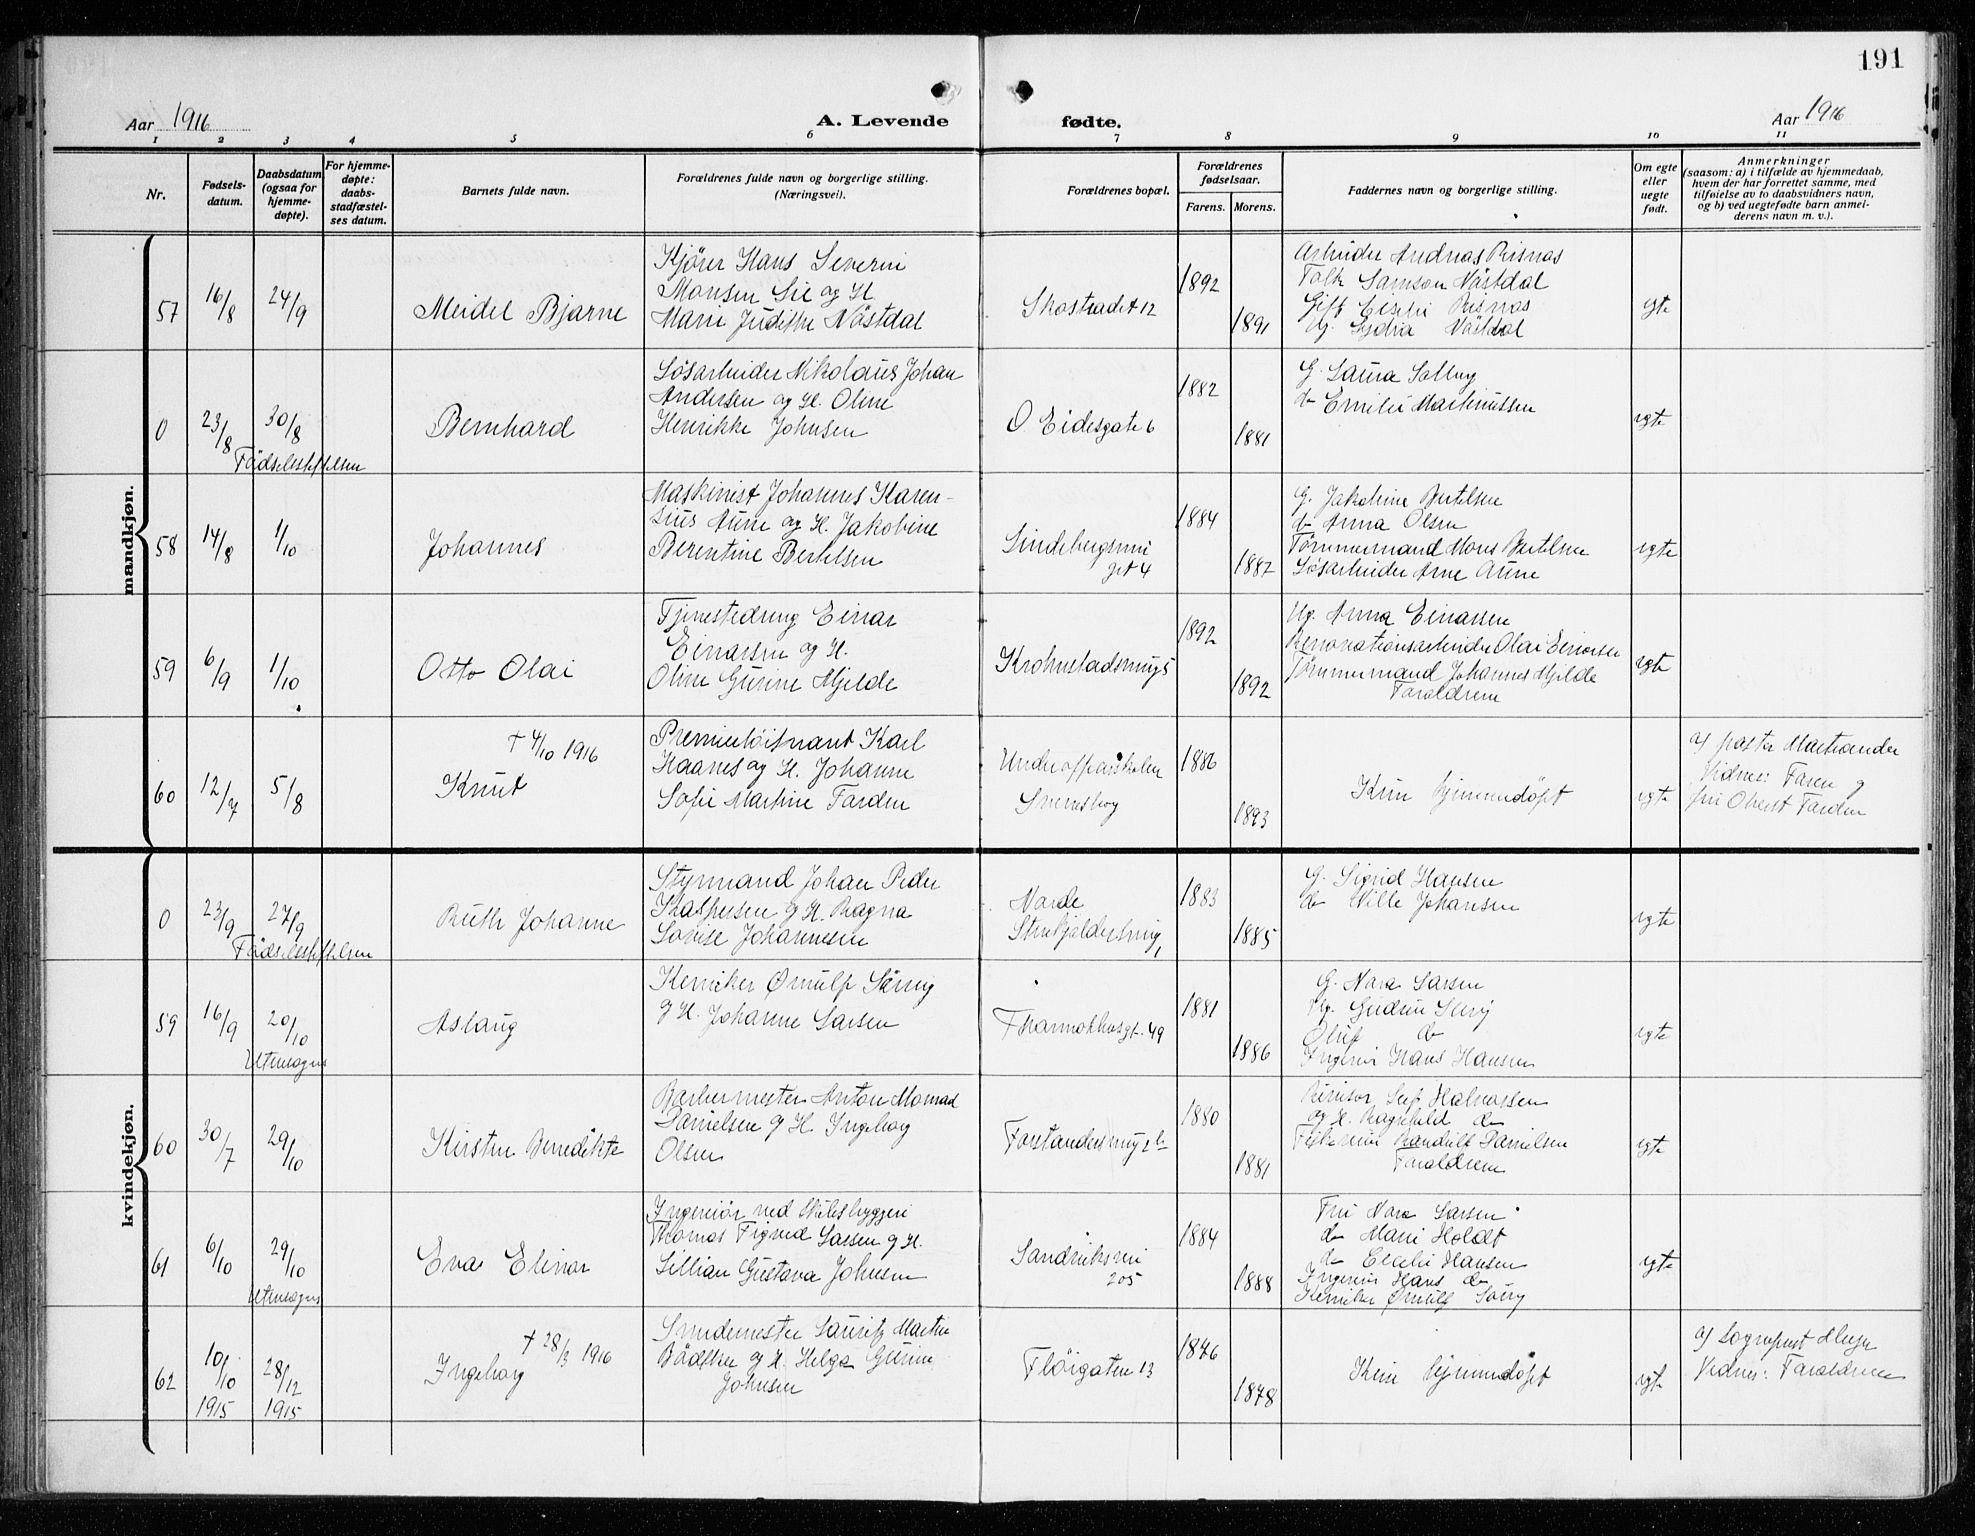 191
Aar 1916
A. Levende fødte.
Aar 1916
1 2 3 4 5 6 7 8 9 10 11
Nr.
Fødsels-
datum.
Daabsdatum
(ogsaa for
hjemme-
døpte).
For hjemme-
døpte:
daabs-
stadfæstel-
ses datum.
Barnets fulde navn.
Forældrenes fulde navn og borgerlige stilling.
(Næringsvei).
Forældrenes bopæl.
Forældrenes
fødselsaar.
Farens. Morens.
Faddernes navn og borgerlige stilling.
Om egte
eller
uegte
født.
Anmerkninger
(saasom: a) i tilfælde av hjemmedaab,
hvem der har forrettet samme, med
tilføielse av to daabsvidners navn,
og b) ved uegtefødte barn anmel-
derens navn m. v.).
mandkjøn.
57
16/8
24/9
Meidel Bjarne
Kjører Hans Severin
Monsen Lie og H.
Marie Judithe Nøstdal
Skostrædet 12
1892
1891
Arbeider Andreas Risnæs
Tolk Samson Nøstdal
Gift Cecilie Risnæs
Ug. Lydia Nøstdal
egte
0
23/8
30/8
Fødselsstiftelsen
Bernhard
Løsarbeider Nikolaus Johan
Andersen og H. Oline
Henrikke Johnsen
O Eidesgate 6
1882
1881
G. Laura Solberg
do Emilie Martinussen
egte
58
14/8
1/10
Johannes
Maskinist Johannes Karen-
sius Aune og H. Jakobine
Berentine Bertelsen
1884
1887
G. Jakobine Bertelsen
do Anna Olsen
Tømmermand Mons Bertelsen
Løsarbeider Arne Aune
egte
59
6/9
1/10
Otto Olai
Tjenestedreng Einar
Einarsen og H.
Oline Gurine Mjelde
Krohnstadsveng 5
1892
1892
Ug. Anna Einarsen
Renovationsarbeider Olai Einarsen
Tømmermand Johannes Mjelde
Forældrene
egte
60
12/7
5/8
† 4/10 1916
Knut
Premierløitnant Karl
Haanes og H. Johanne
Sofie Martine Farden
Underofficerskolen
Sverresborg
1886
1893
Kun hjemmedøpt
egte
af pastor Martrander
Vidner: Faren og
fru Oberst Farden
kvindekjøn.
0
23/9
27/9
Fødselsstiftelsen
Ruth Johanne
Styrmand Johan Peder
Kaspersen og H. Ragna
Lovise Johannesen
Nordre
Stenkjeldersmug
1
1883
1885
G. Sigrid Hansen
do Nille Johansen
egte
59
16/9
20/10
Utensogns
Aslaug
Kemiker Ørnulf Sørvig
og H. Johanne Larsen
Thormøhlensgt. 49
1881
1886
G. Nora Larsen
Ug. Gudrun
Oluf do
Ingeniør Hans Hansen
egte
60
30/7
29/10
Kirsten Benedikte
Barbermester Anton Monrad
Danielsen og H. Ingeborg
Olsen
Forstandersmug 2 b
1880
1881
Revisor Leif Halvorsen
og H. Ragnhild do
Frøken Randulf Danielsen
Forældrene
egte
61
6/10
29/10
Utensogns
Eva Elinor
Ingeniør ved Skibsbyggeri
Thomas Figved Larsen og H.
Lillian Gustava Johnsen
Sandviksvei
205
1884
1888
Fru Nora Larsen
do Marie Holdt
do Cecilie Hansen
Ingeniør Hans do
Kemiker Ørnulf Sørvig
egte
62
10/10
1915
28/12
1915
† 28/3 1916
Ingeborg
Smedemester Lauritz Martin
Bødtker og H. Helga Gurine
Johnsen
Fløigaten 13
1846
1878
Kun hjemmedøpt
egte
af Sogneprest
Vidner: Forældrene